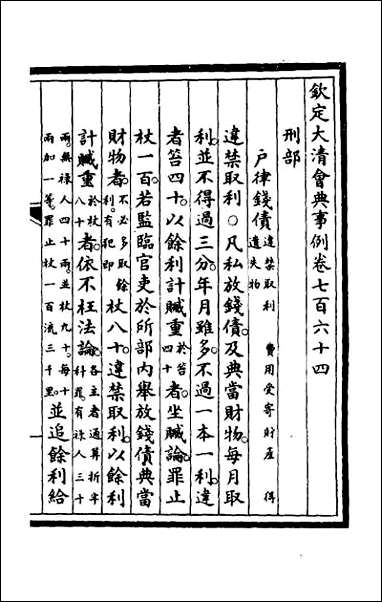 欽定大清會典事例卷七百六十四
刑部
戶律錢債違禁取利　費用受寄財產　得遺失物
違禁取利○凡私放錢債。及典當財物。每月取
利。並不得過三分。年月雖多。不過一本一利。違
者笞四十。以餘利計贓重於笞四十者。坐贓論。罪止
杖一百。若監臨官吏於所部內舉放錢債典當
財物者。不必多取餘利。有犯即杖八十。違禁取利。以餘利
計贓重於杖八十者。依不枉法論。各主者通算折半科罪。有祿人三十
兩。無祿人四十兩。並杖九十。每十兩加一等。罪止杖一百流三千里。並追餘利給